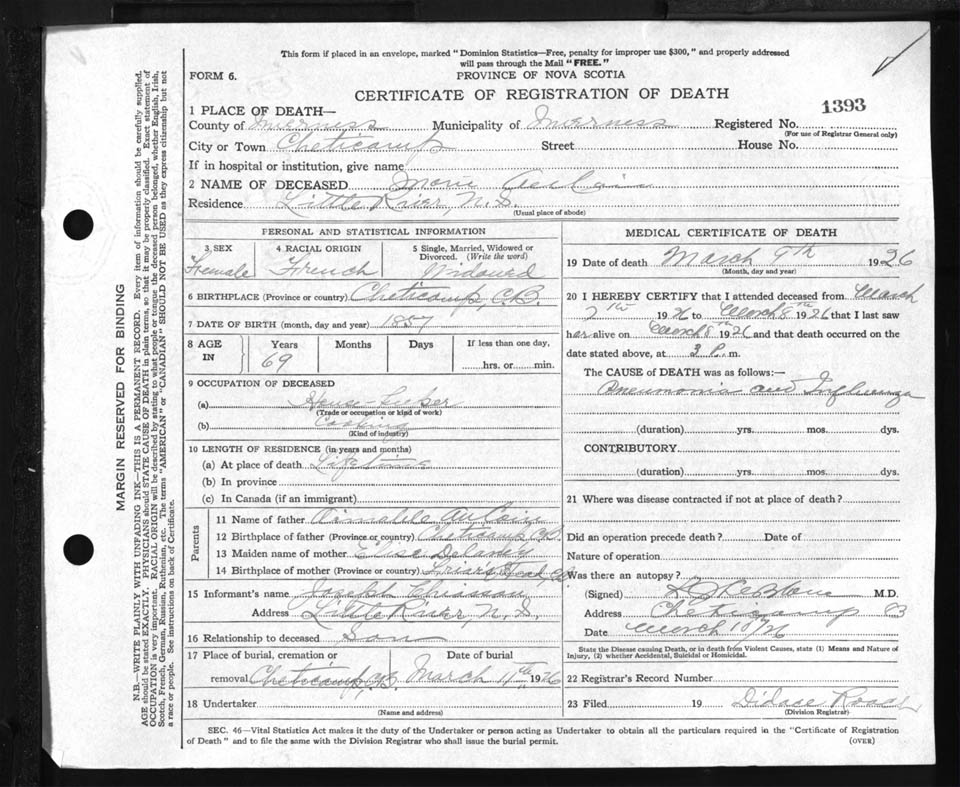 This form if placed in an envelope, marked "Dominion Statistics—Free, penalty for improper use $300," and properly addressed
will pass through the Mail "FREE."
FORM 6.
PROVINCE OF NOVA SCOTIA
CERTIFICATE OF REGISTRATION OF DEATH
1393
1 PLACE OF DEATH—
County of Inverness Municipality of Inverness Registered No.
(For use of Registrar General only)
City or Town Cheticamp Street House No.
If in hospital or institution, give name
2 NAME OF DECEASED Marie AuCoin
Residence Little River, N.S.
(Usual place of abode)
PERSONAL AND STATISTICAL INFORMATION
3 SEX Female
4 RACIAL ORIGIN French
5 Single, Married, Widowed or Divorced. (Write the word) Widowed
6 BIRTHPLACE (Province or country) Cheticamp, C.B.
7 DATE OF BIRTH (month, day and year) 1857
8 AGE IN Years 69 Months Days If less than one day, ......hrs. or......min.
9 OCCUPATION OF DECEASED
(a) House Keeper
(Trade or occupation or kind of work)
(b) Cooking
(Kind of industry)
10 LENGTH OF RESIDENCE (in years and months)
(a) At place of death Lifetime
(b) In province
(c) In Canada (if an immigrant)
Parents
11 Name of father Aimable AuCoin
12 Birthplace of father (Province or country) Cheticamp C.B.
13 Maiden name of mother Elise Delaney
14 Birthplace of mother (Province or country) Friar's Head CB
15 Informant's name Joseph Chiasson
Address Little River, N.S.
16 Relationship to deceased Son
17 Place of burial, cremation or removal Cheticamp, C.B. Date of burial March 11th 1926
18 Undertaker
(Name and address)
MEDICAL CERTIFICATE OF DEATH
19 Date of death March 9th 1926
(Month, day and year)
20 I HEREBY CERTIFY that I attended deceased from March
7th 1926 to March 8th 1926 that I last saw
her alive on March 8th 1926 and that death occurred on the
date stated above, at 3 P. m.
The CAUSE of DEATH was as follows:—
Pneumonia and Influenza
(duration) yrs. mos. dys.
CONTRIBUTORY
(duration) yrs. mos. dys.
21 Where was disease contracted if not at place of death?
Did an operation precede death? Date of
Nature of operation
Was there an autopsy?
(Signed) M.D.
Address Cheticamp CB
Date March 10th/26
State the Disease causing Death, or in death from Violent Causes, state (1) Means and Nature of
Injury, (2) whether Accidental, Suicidal or Homicidal.
22 Registrar's Record Number
23 Filed 19 Didace Roach
(Division Registrar)
SEC. 46—Vital Statistics Act makes it the duty of the Undertaker or person acting as Undertaker to obtain all the particulars required in the "Certificate of Registration
of Death" and to file the same with the Division Registrar who shall issue the burial permit.
(OVER)
MARGIN RESERVED FOR BINDING
N.B.—WRITE PLAINLY WITH UNFADING INK—THIS IS A PERMANENT RECORD. Every item of information should be carefully supplied.
AGE should be stated EXACTLY. PHYSICIANS should STATE CAUSE OF DEATH in plain terms, so that it may be properly classified. Exact statement of
OCCUPATION is very important. RACIAL ORIGIN will be described by stating to what people or tongue the deceased person belonged, whether English, Irish,
Scotch, French, German, Russian, Ruthenian, etc. The terms "AMERICAN" or "CANADIAN" SHOULD NOT BE USED as they express citizenship but not
a race or people. See instructions on back of Certificate.